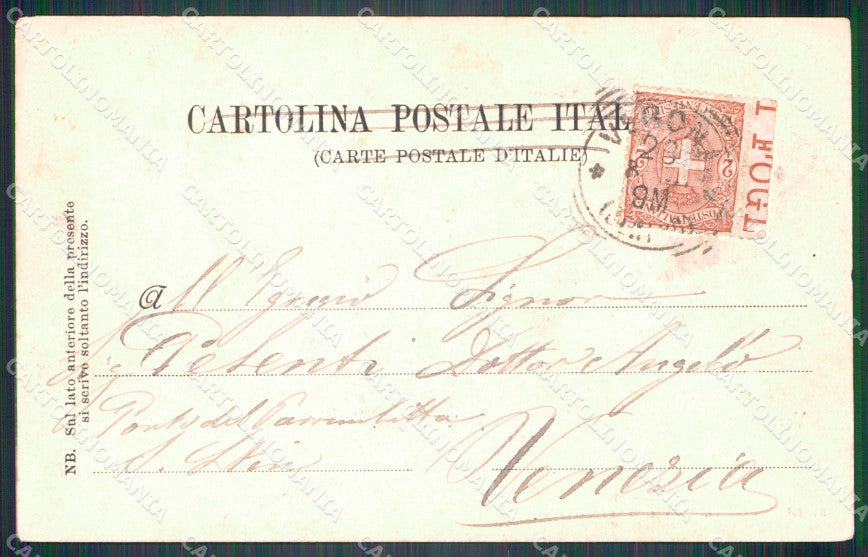 CARTOLINA POSTALE ITAL
(CARTE POSTALE D'ITALIE)
VERONA
23
8
9M
2
1 FOGL
NB. Sul lato anteriore della presente
si scrive soltanto l'indirizzo.
a All Egregio Signor
Pesenti Dottor Angelo
Ponte del
S.
Venezia
CARTOLINOMANIA